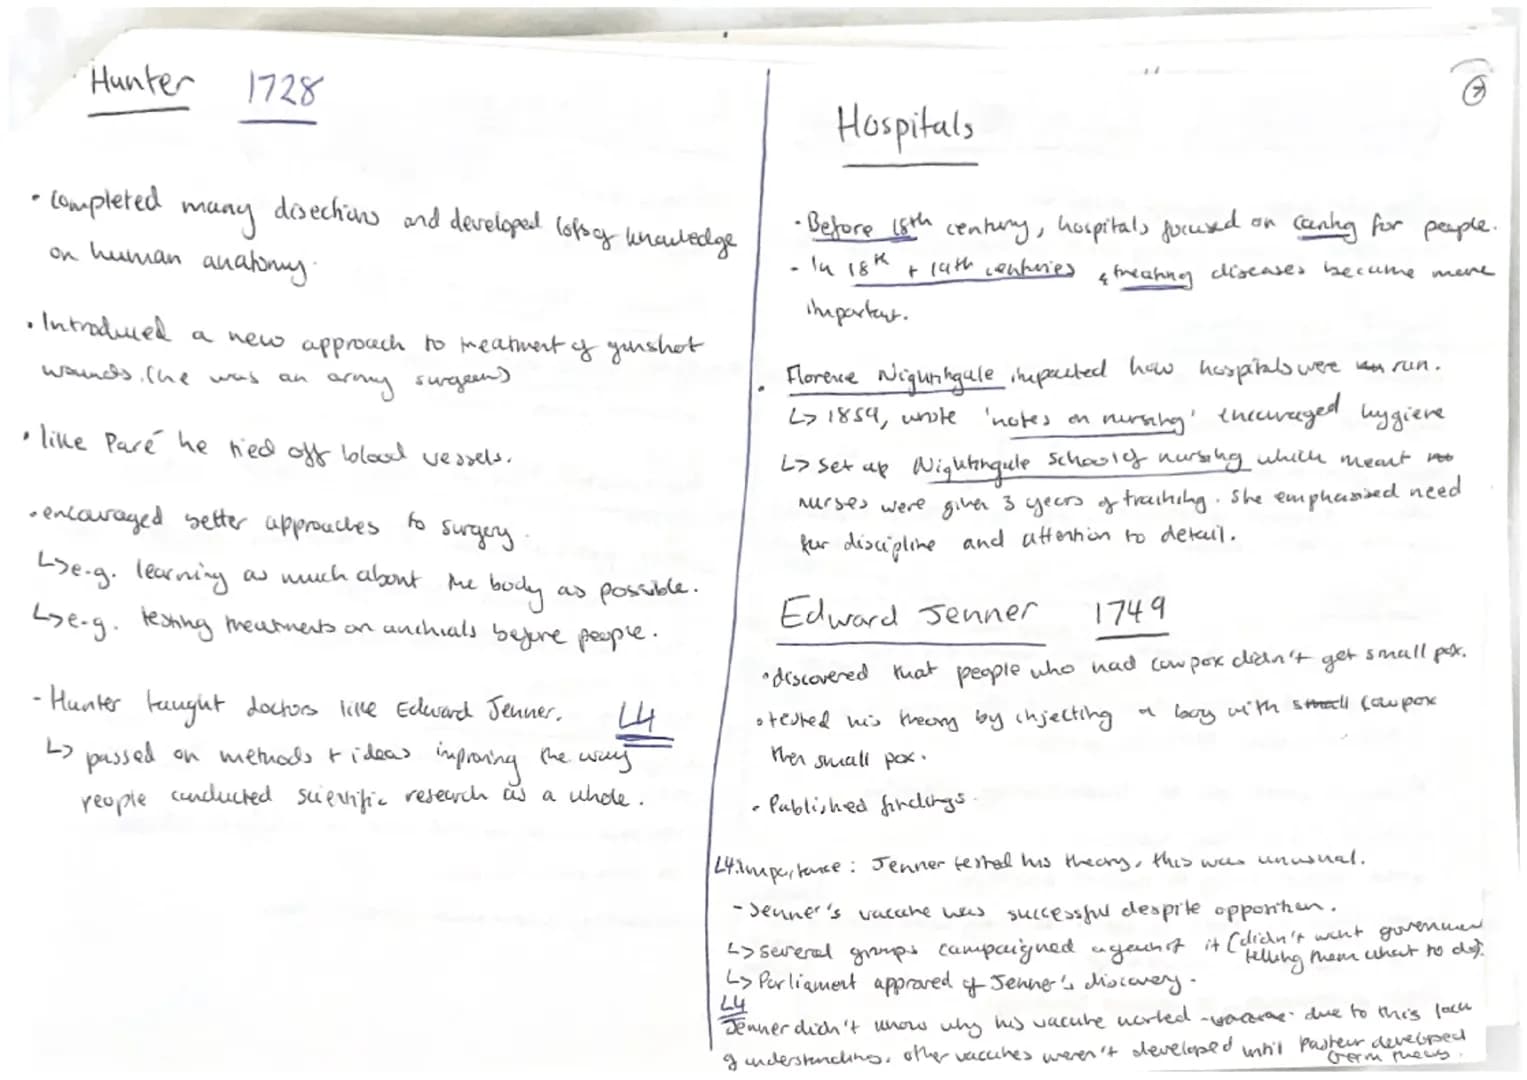 Hunter 1728
• Completed many disections and developed lots of knowledge
on human anatomy.
• Introduced a new approach to treatment of gunshot
wounds. (he was an army surgeon)
• like Paré he tied off blood vessels.
• encouraged better approaches to surgery.
↳ e.g. learning as much about the body as possible.
↳ e.g. testing treatments on animals before people.
- Hunter taught doctors like Edward Jenner. L4
↳ passed on methods + ideas improving the way
people conducted scientific research as a whole.
7
Hospitals
- Before 18th century, hospitals focused on caring for people.
- In 18th + 19th centuries treating diseases became more
important.
• Florence Nightingale impacted how hospitals were run.
↳ 1859, wrote 'notes on nursing' encouraged hygiene
↳ Set up Nightingale School of nursing which meant
nurses were given 3 years of training. She emphasised need
for discipline and attention to detail.
Edward Jenner 1749
• discovered that people who had cowpox didn't get small pox.
• tested his theory by injecting a boy with small cowpox
then small pox.
• Published findings.
L4. Importance: Jenner tested his theory, this was unusual.
- Jenner's vaccine was successful despite opposition.
↳ several groups campaigned against it (didn't want government
telling them what to do).
↳ Parliament approved of Jenner's discovery.
L4
Jenner didn't know why his vaccine worked due to this lack
of understanding, other vaccines weren't developed until Pasteur developed
Germ theory.